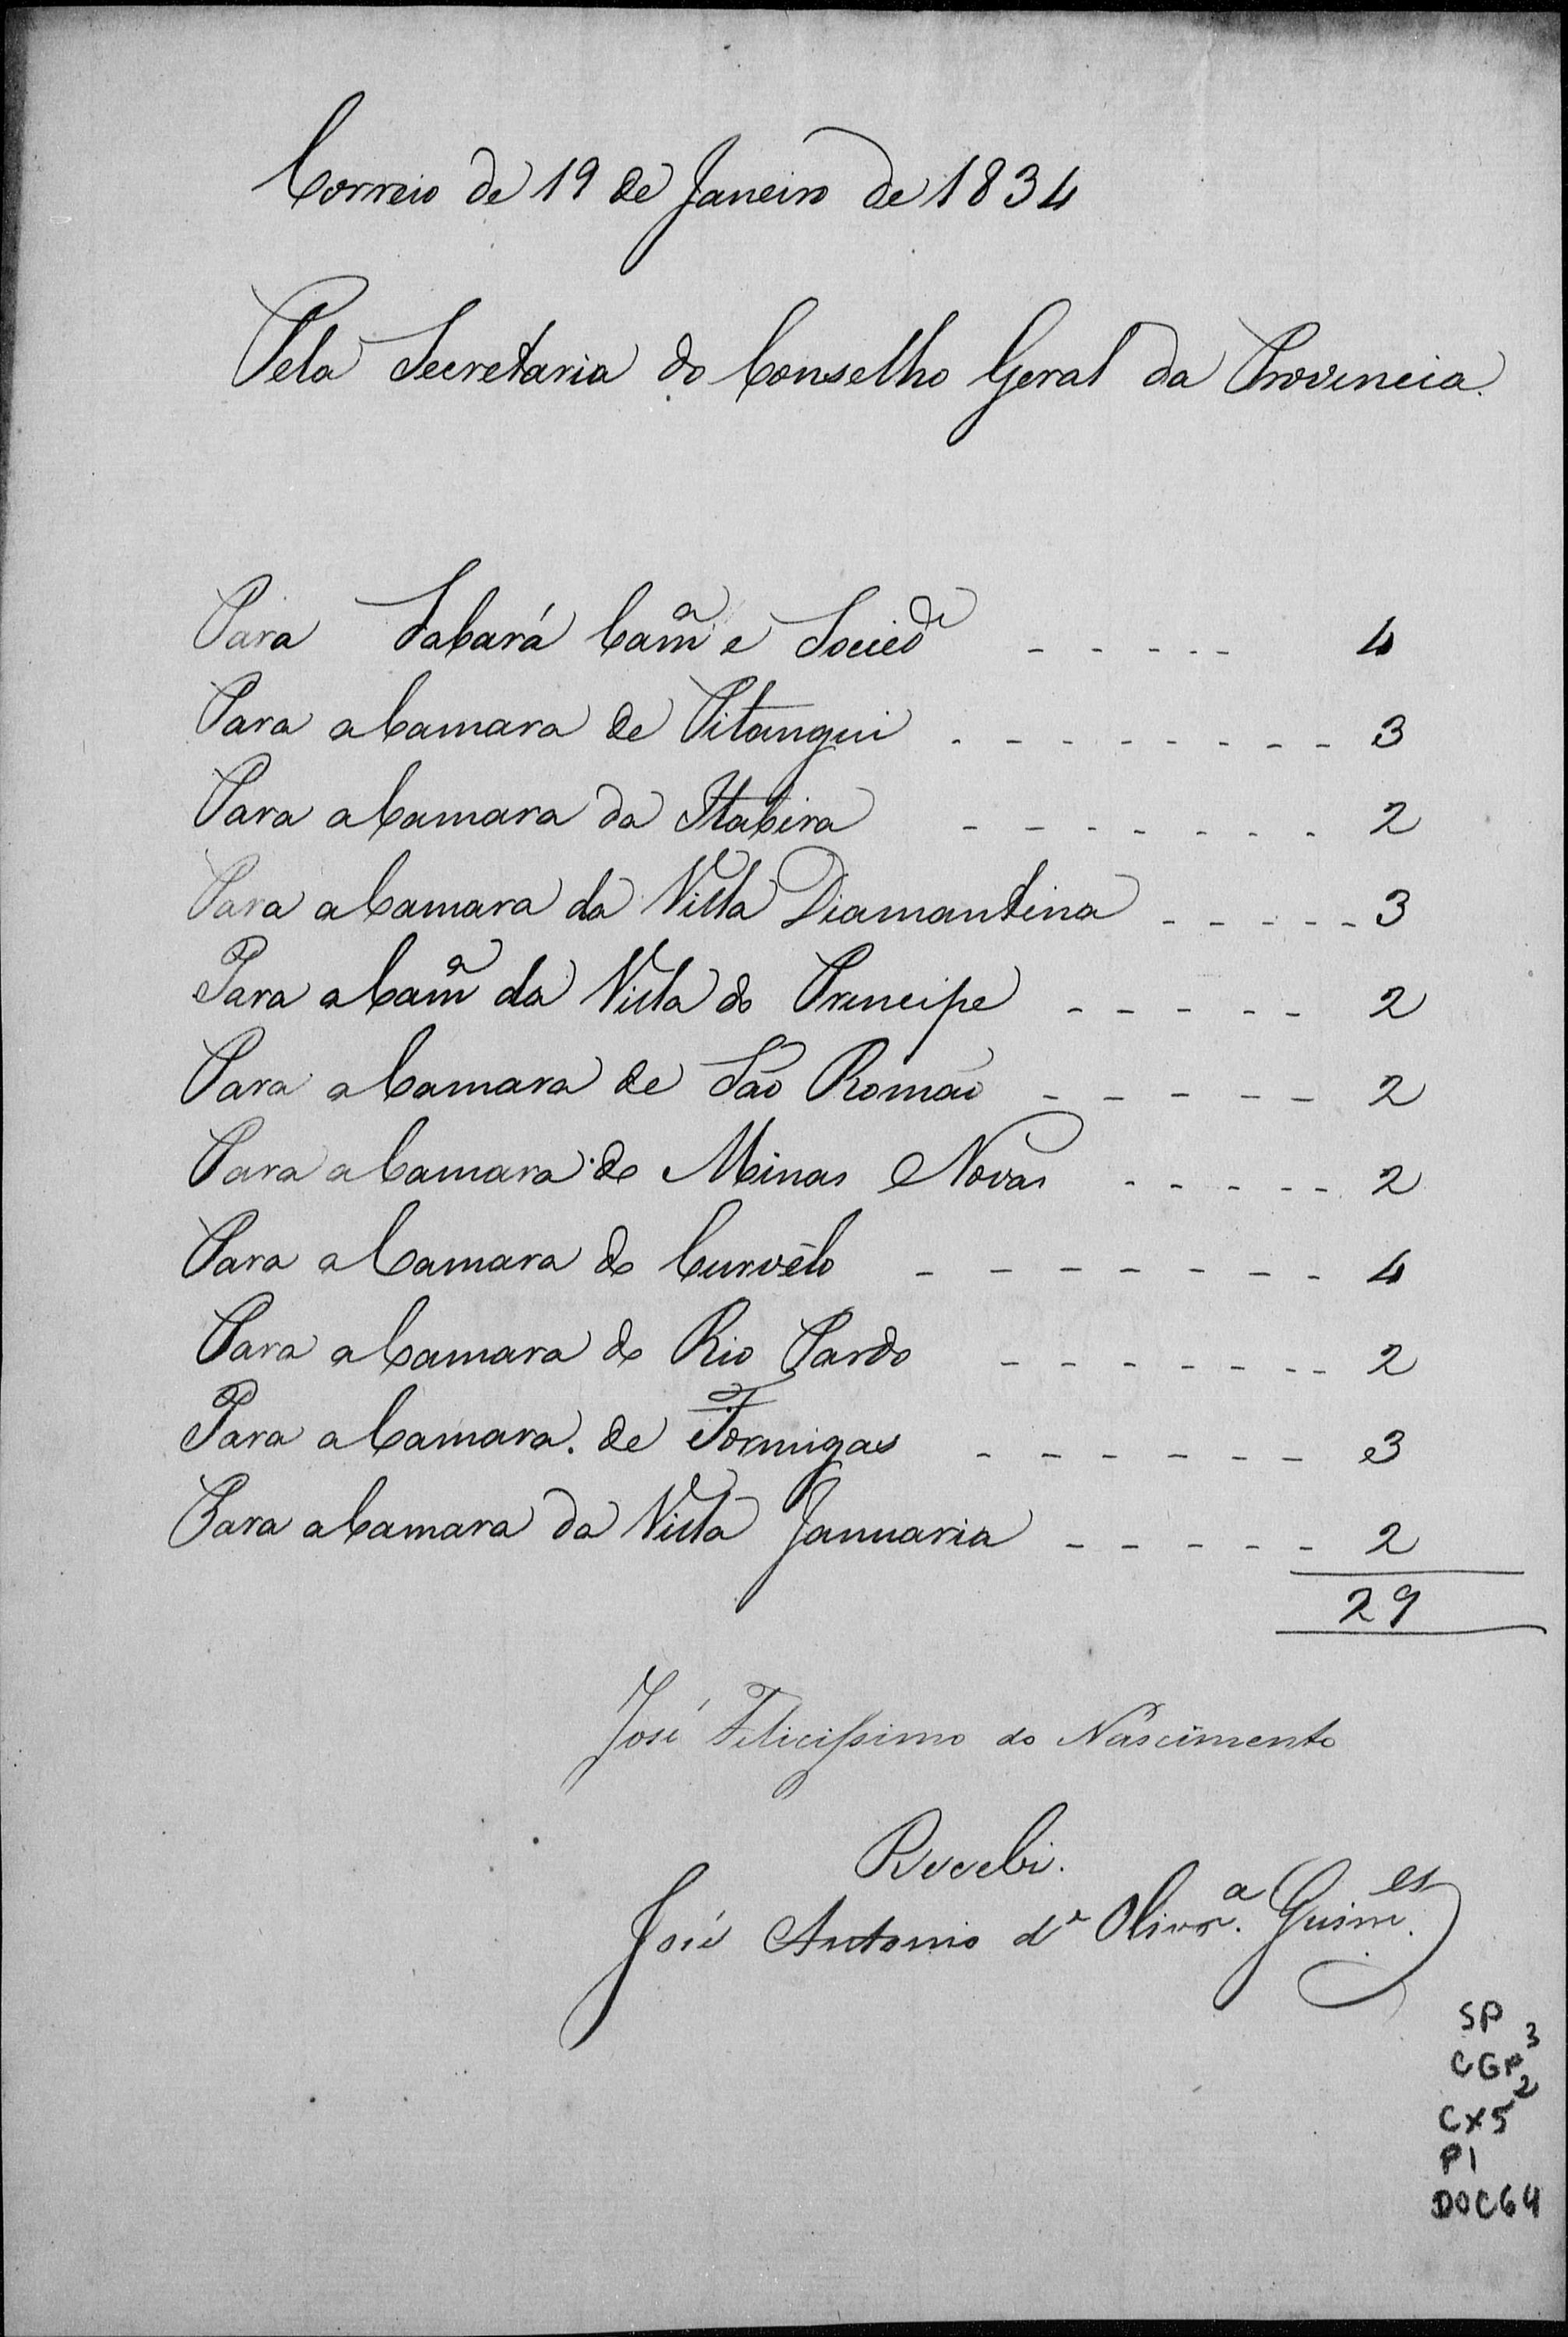 Correio de 19 de Janeiro de 1834
Pela Secretaria do Conselho Geral da Provincia.
Para Sabará Cam̃ᵃ eOciedᵉ - - - - - 4
Para a Camara de Pitangui - - - - - - - - 3
Para a Camara da Itabira - - - - - - - 2
Para a Camara da Villa Diamantina - - - - - 3
Para a Cam̃ᵃ da Villa do Principe - - - - - 2
Para a Camara de São Romão - - - - - 2
Para a Camara de Minas Novas - - - - - 2
Para a Camara do Curvêlo - - - - - - - - 4
Para a Camara do Rio Pardo - - - - - - - 2
Para a Camara. de Formigas - - - - - - 3
Para a Camara da Villa Januaria - - - - - 2
29
José Feliciſsimo do Nascimento
Recebi.
José Antonio dᵉ Olivrᵃ. Guimᵉˢ.
SP
CGP 3
2
CX5
P1
DOC64